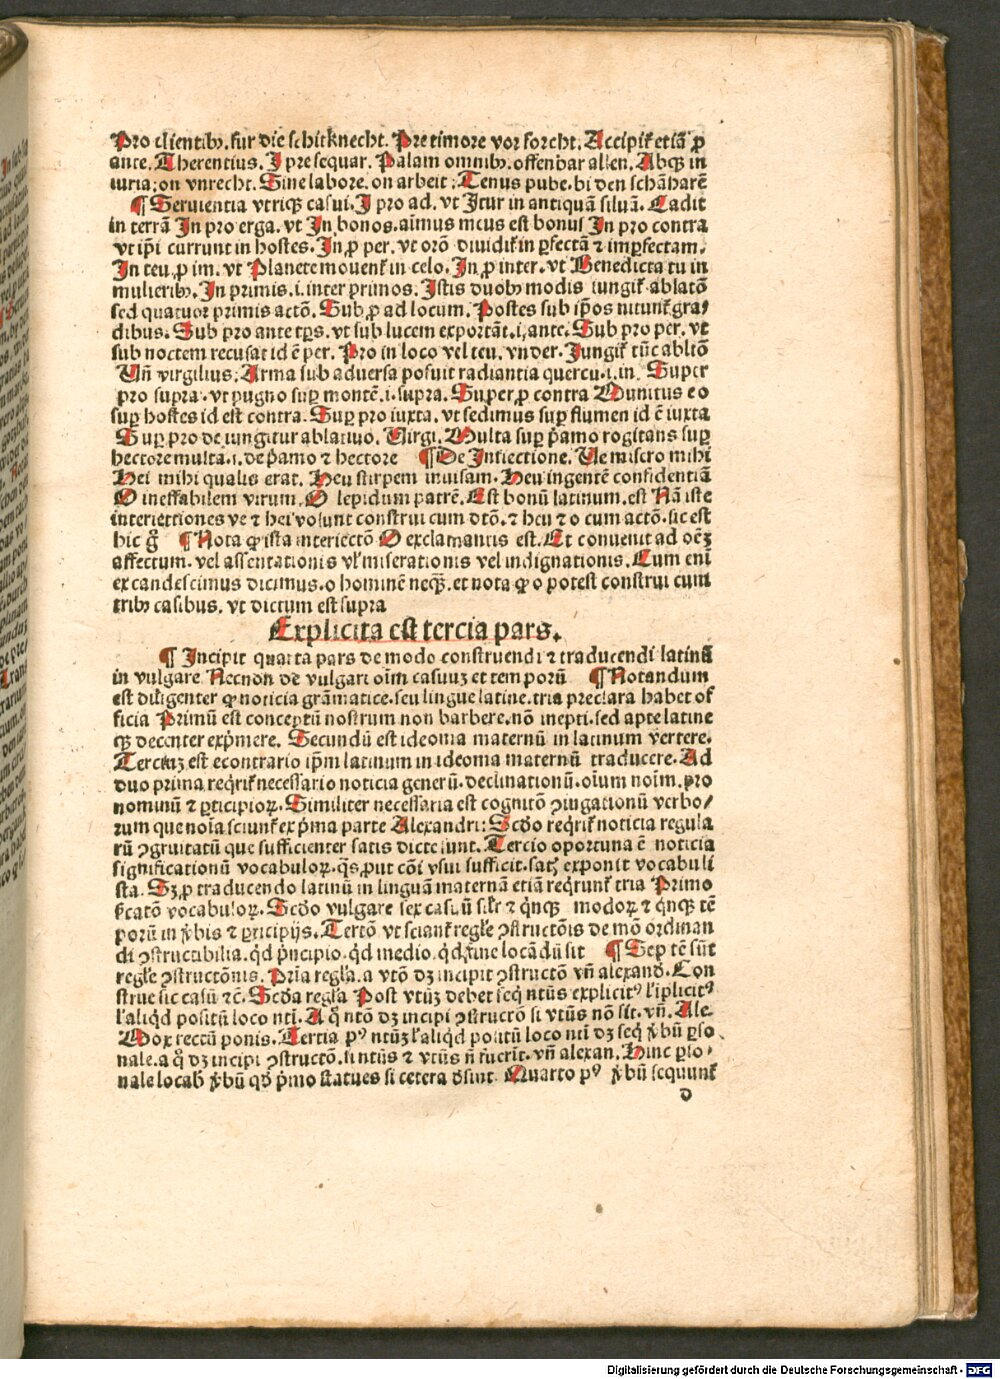 Pro clientibꝫ. fur die schitknecht. Pre timore vor forcht. Accipit᷑ etiã ꝓ
ante. Therentius. I pre sequar. Palam omnibꝫ. offenbar allen. Absqꝫ in
iuria; on vnrecht. Sine labore. on arbeit: Tenus pube. bi den schãharẽ
¶ Seruientia vtriqꝫ casui. I pro ad. vt Itur in antiquã siluã. Cadit
in terrã In pro erga. vt In bonos. aĩmus meus est bonus In pro contra
vt ip̃i currunt in hostes. In ꝓ per. vt orõ diuidit᷑ in ꝑfectã ⁊ imꝑfectam.
In teu ꝓ im. vt Planete mouent᷑ in celo. In ꝓ inter. vt Benedicta tu in
mulieribꝫ. In primis .i. inter primos. Istis duobꝫ modis iungit᷑ ablatõ
sed quatuor primis actõ. Sub ꝓ ad locum. Postes sub ip̃os nitunt᷑ gra/
dibus. Sub pro ante tp̃s. vt sub lucem exportãt .i. ante. Sub pro per. vt
sub noctem recusat id ẽ per. Pro in loco vel teu. vnder. Iungit᷑ tũc abltõ
Vñ virgilius: Arma sub aduersa posuit radiantia quercu .i. in. Super
pro supra. vt pugno suꝑ montẽ .i. supra. Super ꝓ contra Munitus eo
suꝑ hostes id est contra. Suꝑ pro iuxta. vt sedimus suꝑ flumen id ẽ iuxta
Suꝑ pro de iungitur ablatiuo. Virgi. Multa suꝑ p̃amo rogitans suꝑ
hectore multa .i. de p̃amo ⁊ hectore ¶ De Int̃iectione. Ve misero mihi
Hei mihi qualis erat. Heu stirpem inuisam. Heu ingentẽ confidentiã
O ineffabilem virum. O lepidum patrẽ. Est bonũ latinum. est Nã iste
interiectiones ve ⁊ hei volunt construi cum dtõ. ⁊ heu ⁊ o cum actõ. sic est
hic g̃ ¶ Nota ꝙ ista interiectõ O exclamantis est. Et conuenit ad oẽꝫ
affectum. vel assentationis vl̕ miserationis vel indignationis. Cum eni
excandescimus dicimus. o hominẽ neqꝫ. et nota ꝙ o potest construi cum
tribꝫ casibus. vt dictum est supra
Explicita est tercia pars.
¶ Incipit quarta pars de modo construendi ⁊ traducendi latinũ
in vulgare Necnon de vulgari oĩm casuuꝫ et temporũ ¶ Notandum
est diligenter ꝙ noticia grãmatice. seu lingue latine. tria preclara habet of
ficia Primũ est conceptũ nostrum non barbere. nõ inepti. sed apte latine
qꝫ decenter exp̃mere. Secundũ est ideoma maternũ in latinum vertere.
Terciuꝫ est econtrario ip̃m latinum in ideoma maternũ traducere. Ad
duo prima req̃rit᷑ necessario noticia generũ. declinationũ. oĩum noĩm. pro
nominũ ⁊ ꝑticipioꝝ. Similiter necessaria est cognitõ ꝯiugationũ verbo/
rum que noĩa sciunt᷑ ex p̃ma parte Alexandri: Scd̃o req̃rit᷑ noticia regula
rũ ꝯgruitatũ que sufficienter satis dicte sunt. Tercio oportuna ẽ noticia
significationũ vocabuloꝝ. q̃s ꝓut cõi vsui sufficit. satꝫ exponit vocabuli
sta. Sꝫ ꝓ traducendo latinũ in linguã maternã etiã req̃runt᷑ tria Primo
s̃catõ vocabuloꝝ. Scd̃o vulgare sex casuũ sil̕r ⁊ q̃nqꝫ modoꝝ ⁊ q̃nqꝫ tẽ
porũ in v̓bis ⁊ ꝑticipijs. Tertõ vt sciant᷑ regl̕e ꝯstructõis de mõ ordinan
di ꝯstructibilia. q̃d p̃ncipio. q̃d medio. q̃d fine locãdũ sit ¶ Septẽ sũt
regl̕e ꝯstructõnis. Prĩa regl̕a. a vtõ dꝫ incipit ꝯstructõ vñ alexand̃. Con
strue sic casũ ⁊c̃. Scd̃a regl̕a Post vtũꝫ debet seq̃ ntũs explicitꝰ l̕ iplicitꝰ
l̕ aliq̃d positũ loco nti. A q̃ ntõ dꝫ incipi ꝯstructõ si vtũs nõ sit. vñ. Ale.
Mox rectũ ponis. Tertia pꝰ ntũꝫ l̕ aliq̃d positũ loco nti dꝫ seq̃ v̓bũ ꝑso
nale. a q̃ dꝫ incipi ꝯstructõ. si ntũs ⁊ vtũs ñ fũerit. vñ alexan. Hinc ꝑso
nale locab̃ v̓bũ qd̃ p̃mo statues si cetera d̃sint Quarto pꝰ v̓bũ sequunt᷑
d
Digitalisierung gefördert durch die Deutsche Forschungsgemeinschaft - DFG